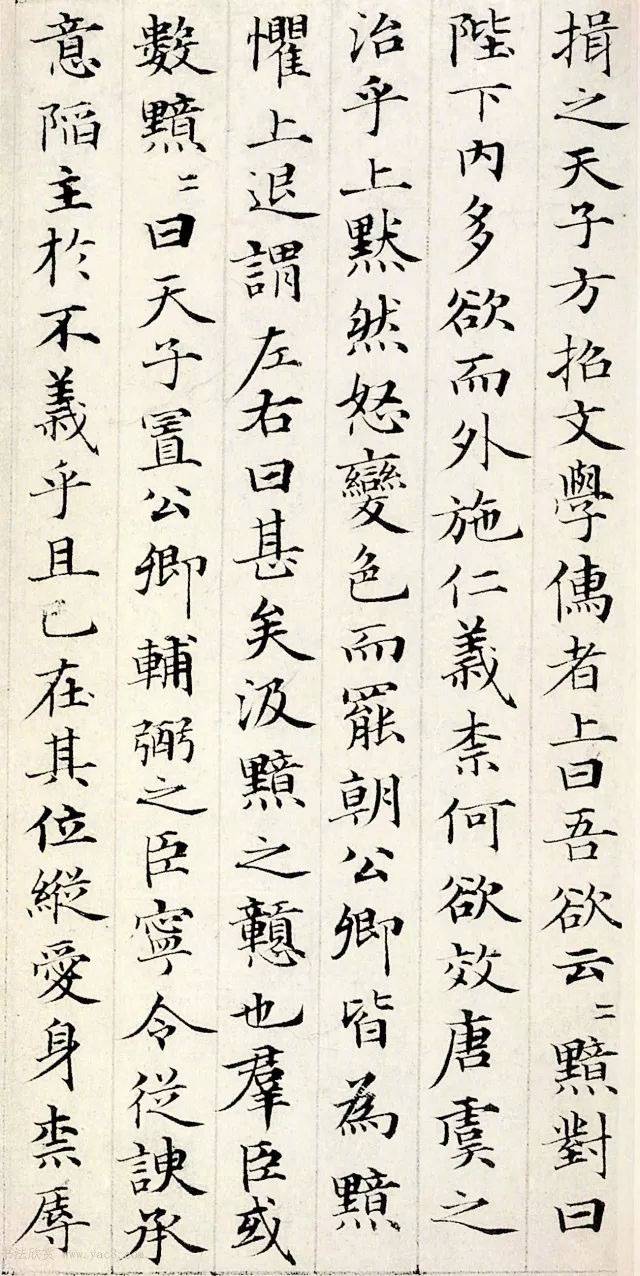 揖之天子方招文學儁者上曰吾欲云〻黯對曰
陛下內多欲而外施仁義柰何欲效唐虞之
治乎上黙然怒變色而罷朝公卿皆為黯
懼上退謂左右曰甚矣汲黯之戇也羣臣或
數黯〻曰天子置公卿輔弼之臣寧令從諛承
意陷主於不義乎且已在其位縱愛身柰辱
书法欣赏 www.yac8.com